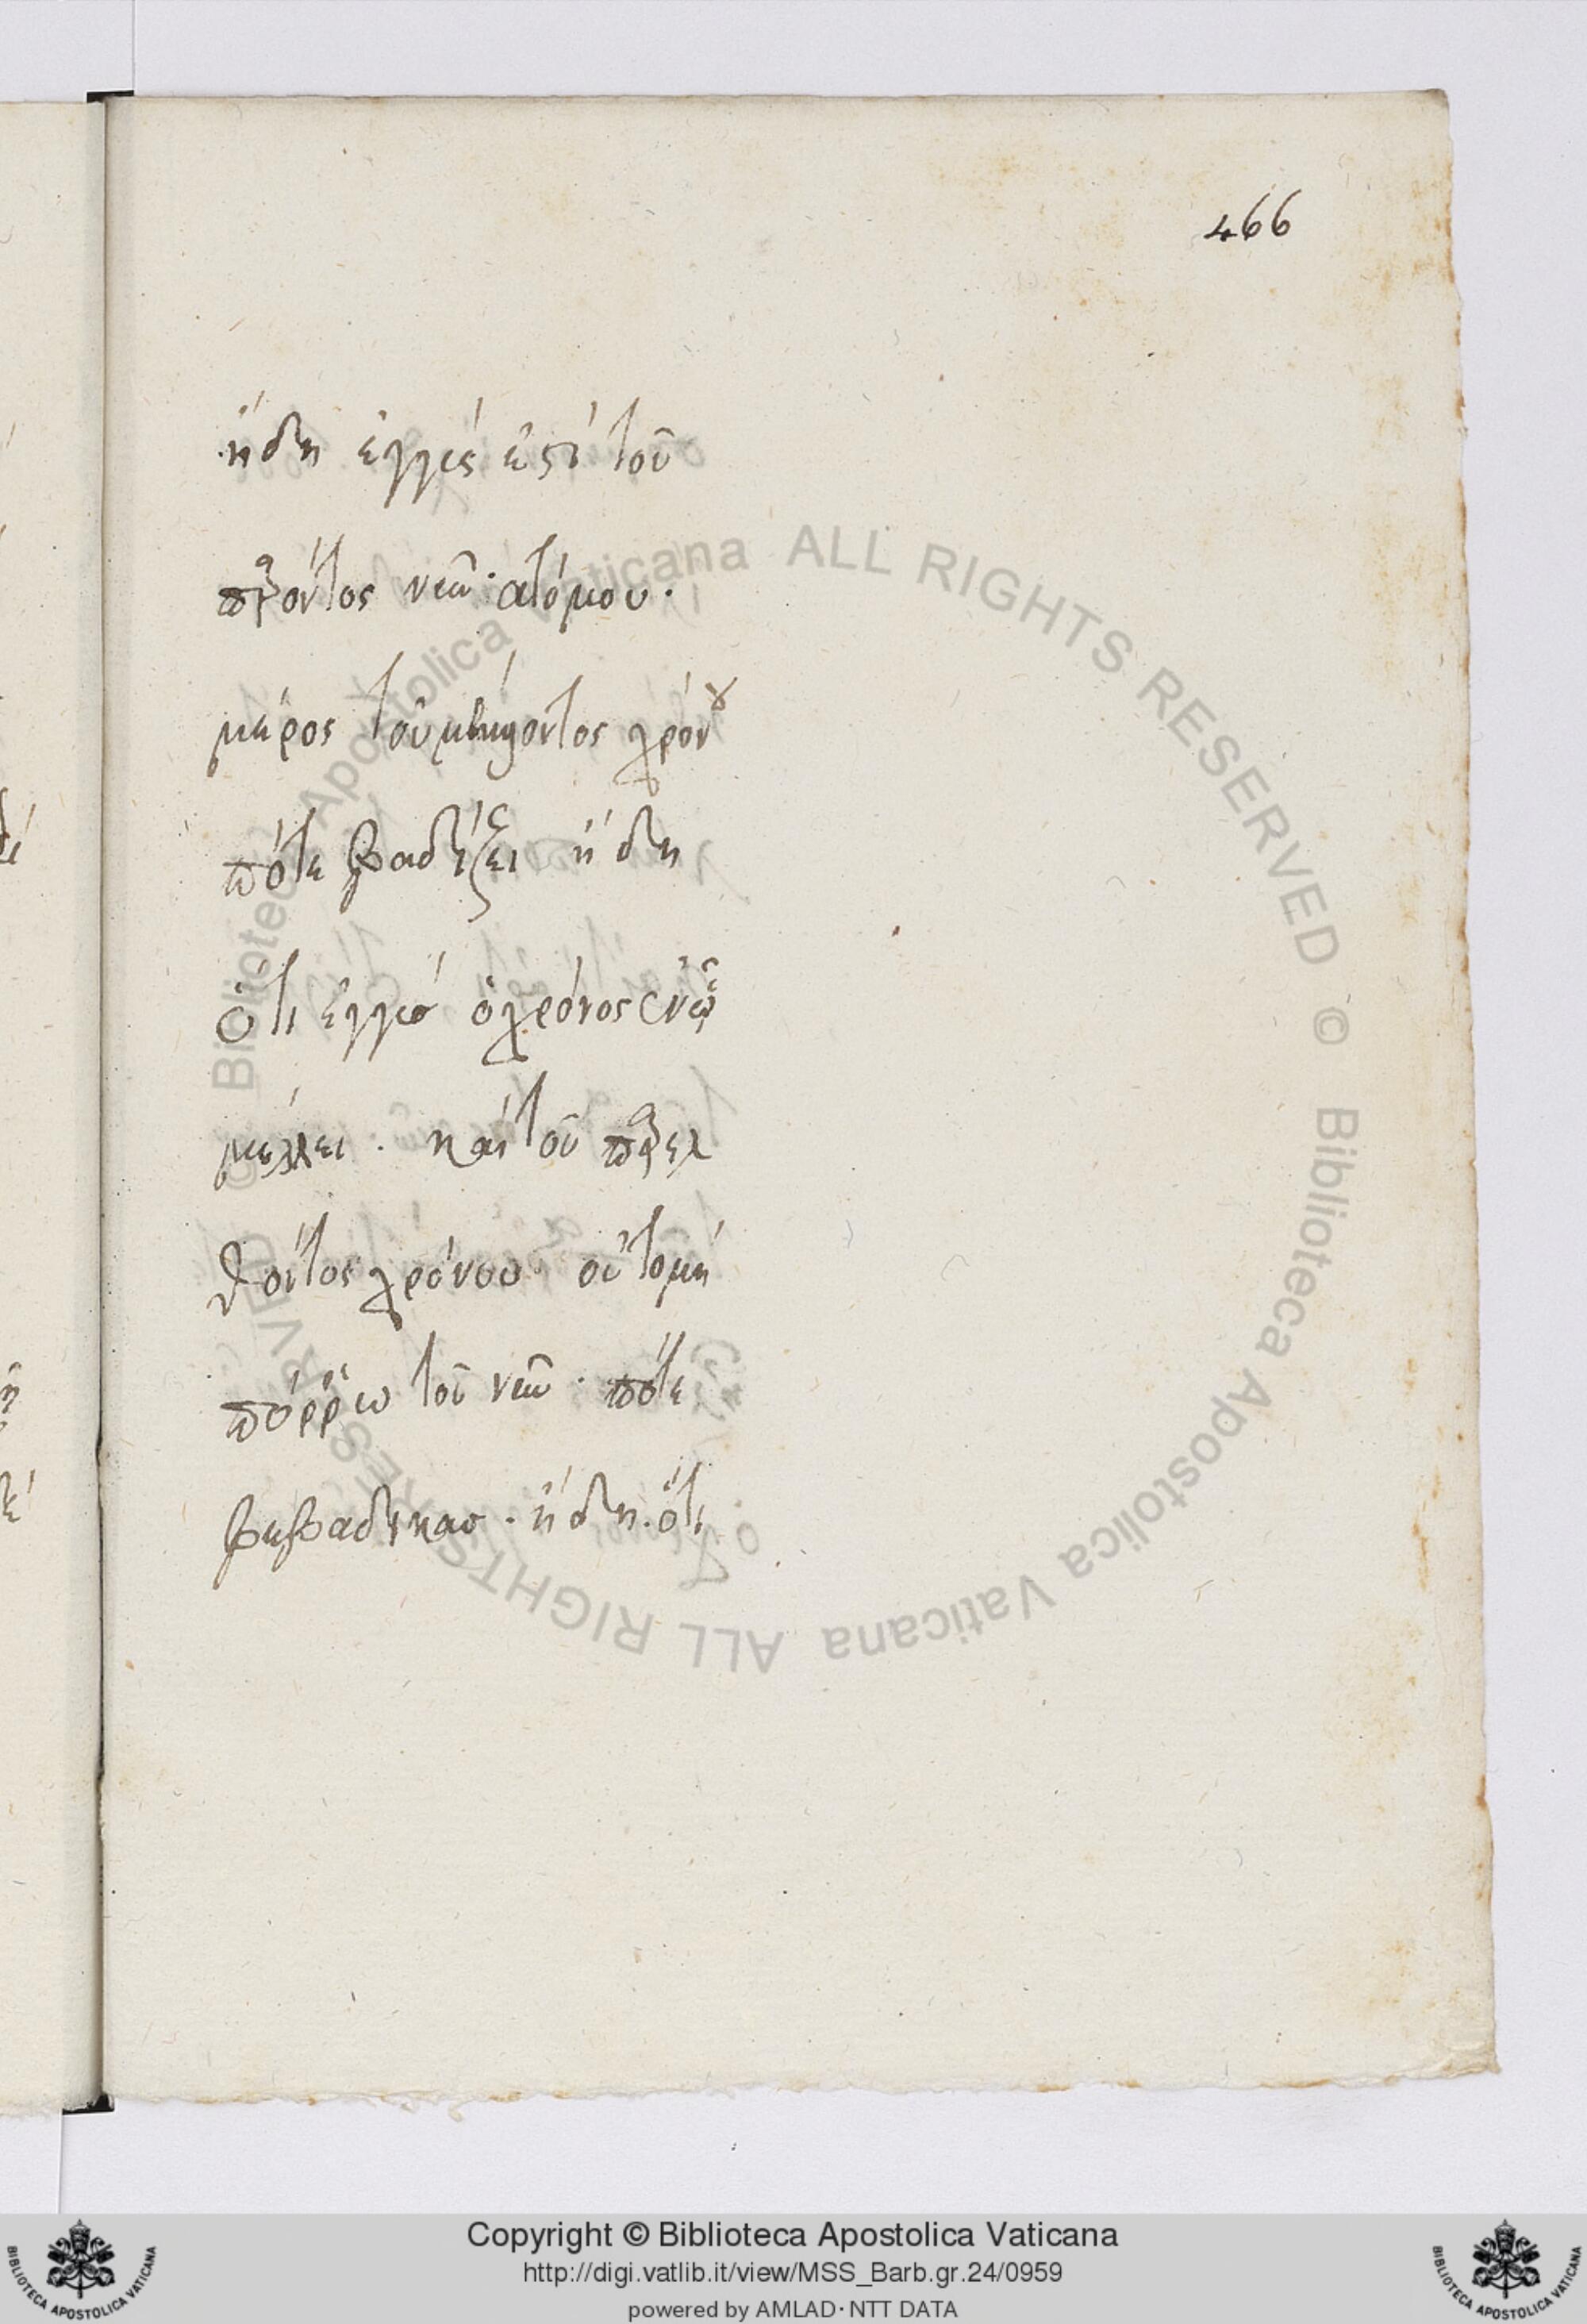 466
ἤδη ἐγγύς ἐστί τοῦ
παρόντος νῦν· ατόμου·
μέρος τοῦ μέλλοντος χρόνου
πότε βαδίζεις ἤδη
ὅτι ἐγγύσ ὁ χρόνος ἐν ᾧ
μέλλει · καί τοῦ παρελ
θόντος χρόνου· οὐ τομή
πόρρω τοῦ νῦν · πότε
βεβαδικασ · ἤδη · ὅτι
© Biblioteca Apostolica Vaticana ALL RIGHTS RESERVED © Biblioteca Apostolica Vaticana ALL RIGHTS RESERVED
Copyright © Biblioteca Apostolica Vaticana
http://digi.vatlib.it/view/MSS_Barb.gr.24/0959
powered by AMLAD·NTT DATA
BIBLIOTECA APOSTOLICA VATICANA
BIBLIOTECA APOSTOLICA VATICANA